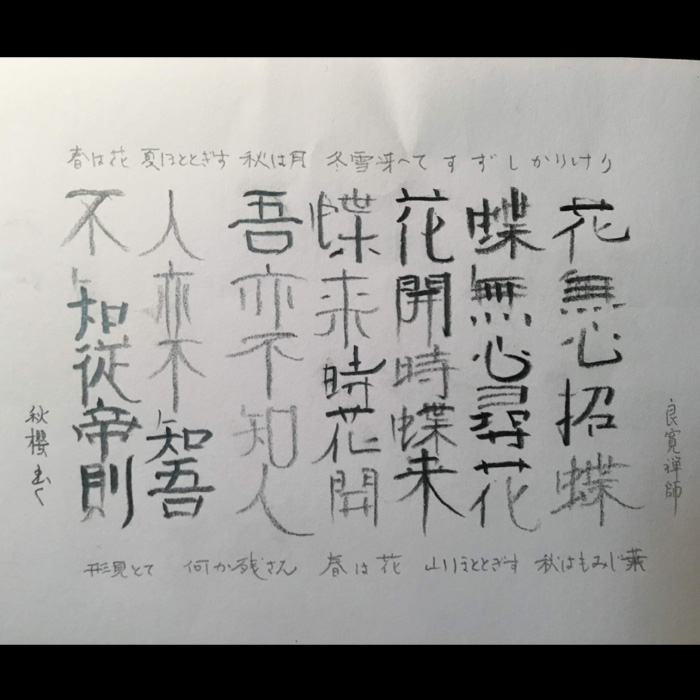 春は花 夏ほととぎす 秋は月 冬雪冴へて すずしかりけり
良寛禅師
花無心招蝶
蝶無心尋花
花開時蝶来
蝶来時花開
吾亦不知人
人亦不知吾
不知従帝則
秋櫻書く
形見とて 何か残さん 春は花 山ほととぎす 秋はもみじ葉